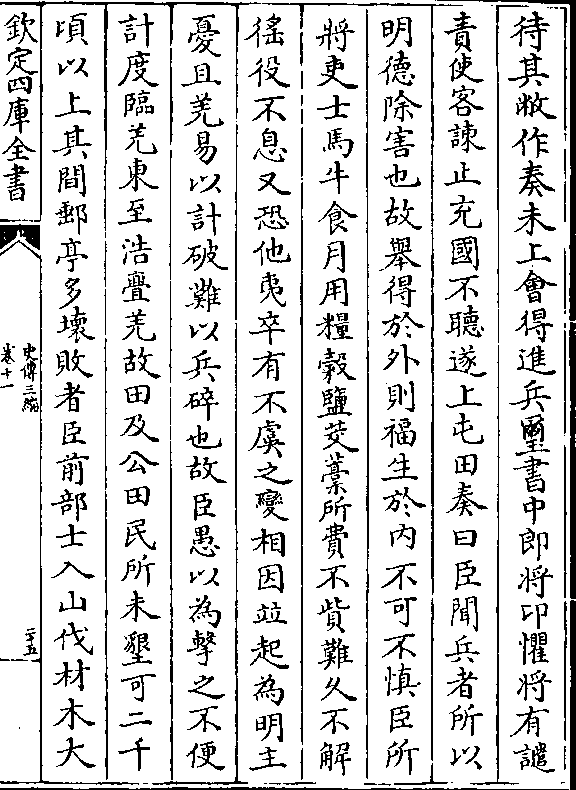 待其敝作奏未上會得進兵璽書中郎將卬懼將有譴
責使客諫止充國不聽遂上屯田奏曰臣聞兵者所以
明德除害也故舉得於外則福生於内不可不慎臣所
將吏士馬牛食月用糧穀鹽茭藁所費不貲難久不解
徭役不息又恐他夷卒有不虞之變相因竝起為明主
憂且羌易以計破難以兵碎也故臣愚以為擊之不便
計度臨羌東至浩亹羌故田及公田民所未墾可二千
頃以上其間郵亭多壞敗者臣前部士入山伐材木大
欽定四庫全書
史傳三編
卷十一
二十五